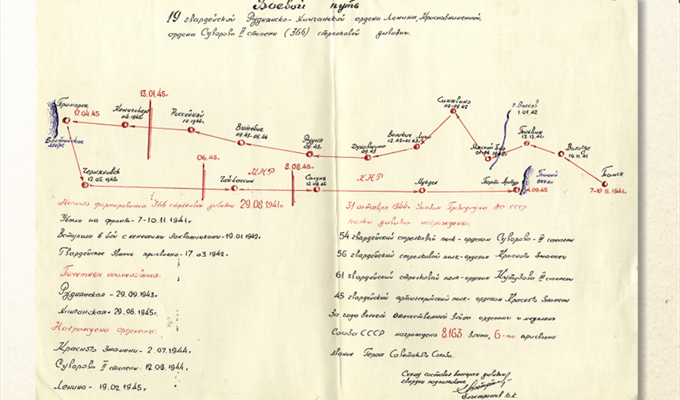 Боевой путь
19 гвардейской Руднинско-Хинганской ордена Ленина, Краснознаменной,
ордена Суворова II степени (366) стрелковой дивизии.
13.01.45г.
Приморск
17.04.45
Балтийское
море
Российкой
Витебск
Рудня
Духовщина
Великие Луки
Синявино
р. Волхов
1.01.42
Мясной Бор
Тихвин
Вологда
Томск
7-10.11.1941г.
Черняховск
12.05.1945г.
06.45г.
МНР
Чойбалсан
8.08.45г.
Солунь
КНР
Мукден
Порт-Артур
Начало формирования 366 стрелковой дивизии 29.08.1941г.
Убыла на фронт - 7-10.11.1941г.
Вступила в бой с немецкими захватчиками - 19.01.1942г.
Гвардейское звание присвоено - 17.03.1942г.
Почетные наименования:
Руднинская - 29.09.1943г.
Хинганская - 20.09.1945г.
Награждена орденами:
Красного Знамени - 2.07.1944г.
Суворова II степени - 12.08.1944г.
Ленина - 19.02.1945г.
Указом Президиума ВС СССР
полки дивизии награждены:
54 гвардейский стрелковый полк - орденом Суворова - II степени
56 гвардейский стрелковый полк - орденом Красного Знамени
61 гвардейский стрелковый полк - орденом Кутузова II степени
45 гвардейский артиллерийский полк - орденом Красного Знамени
За годы Великой Отечественной войны орденами и медалями
Союза СССР награждено 8163 воина, 6-ти присвоено
звание Героя Советского Союза.
Совет ветеранов дивизии
гвардии подполковник